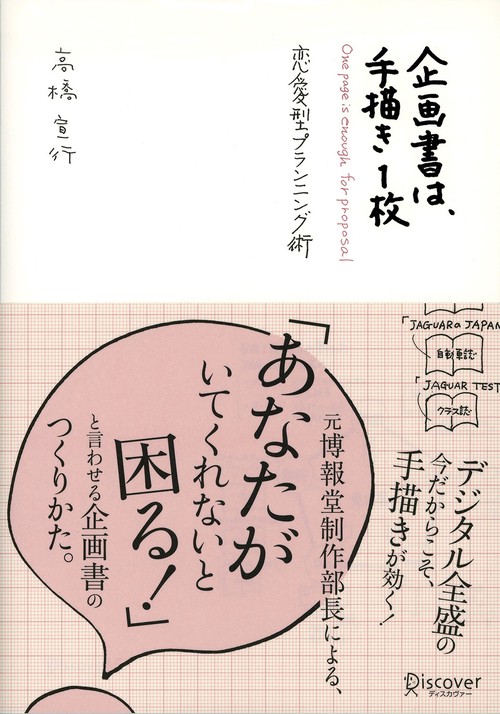 企画書は、
手描き1枚
One page is enough for proposal
恋愛型プランニング術
高橋宣行
「JAGUAR a JAPAN
自動車誌
「JAGUAR TEST
クラス誌
デジタル全盛の
今だからこそ、
手描きが効く!
元博報堂制作部長による、
「あなたが
いてくれないと
困る!」
と言わせる企画書の
つくりかた。
Discover
ディスカヴァー